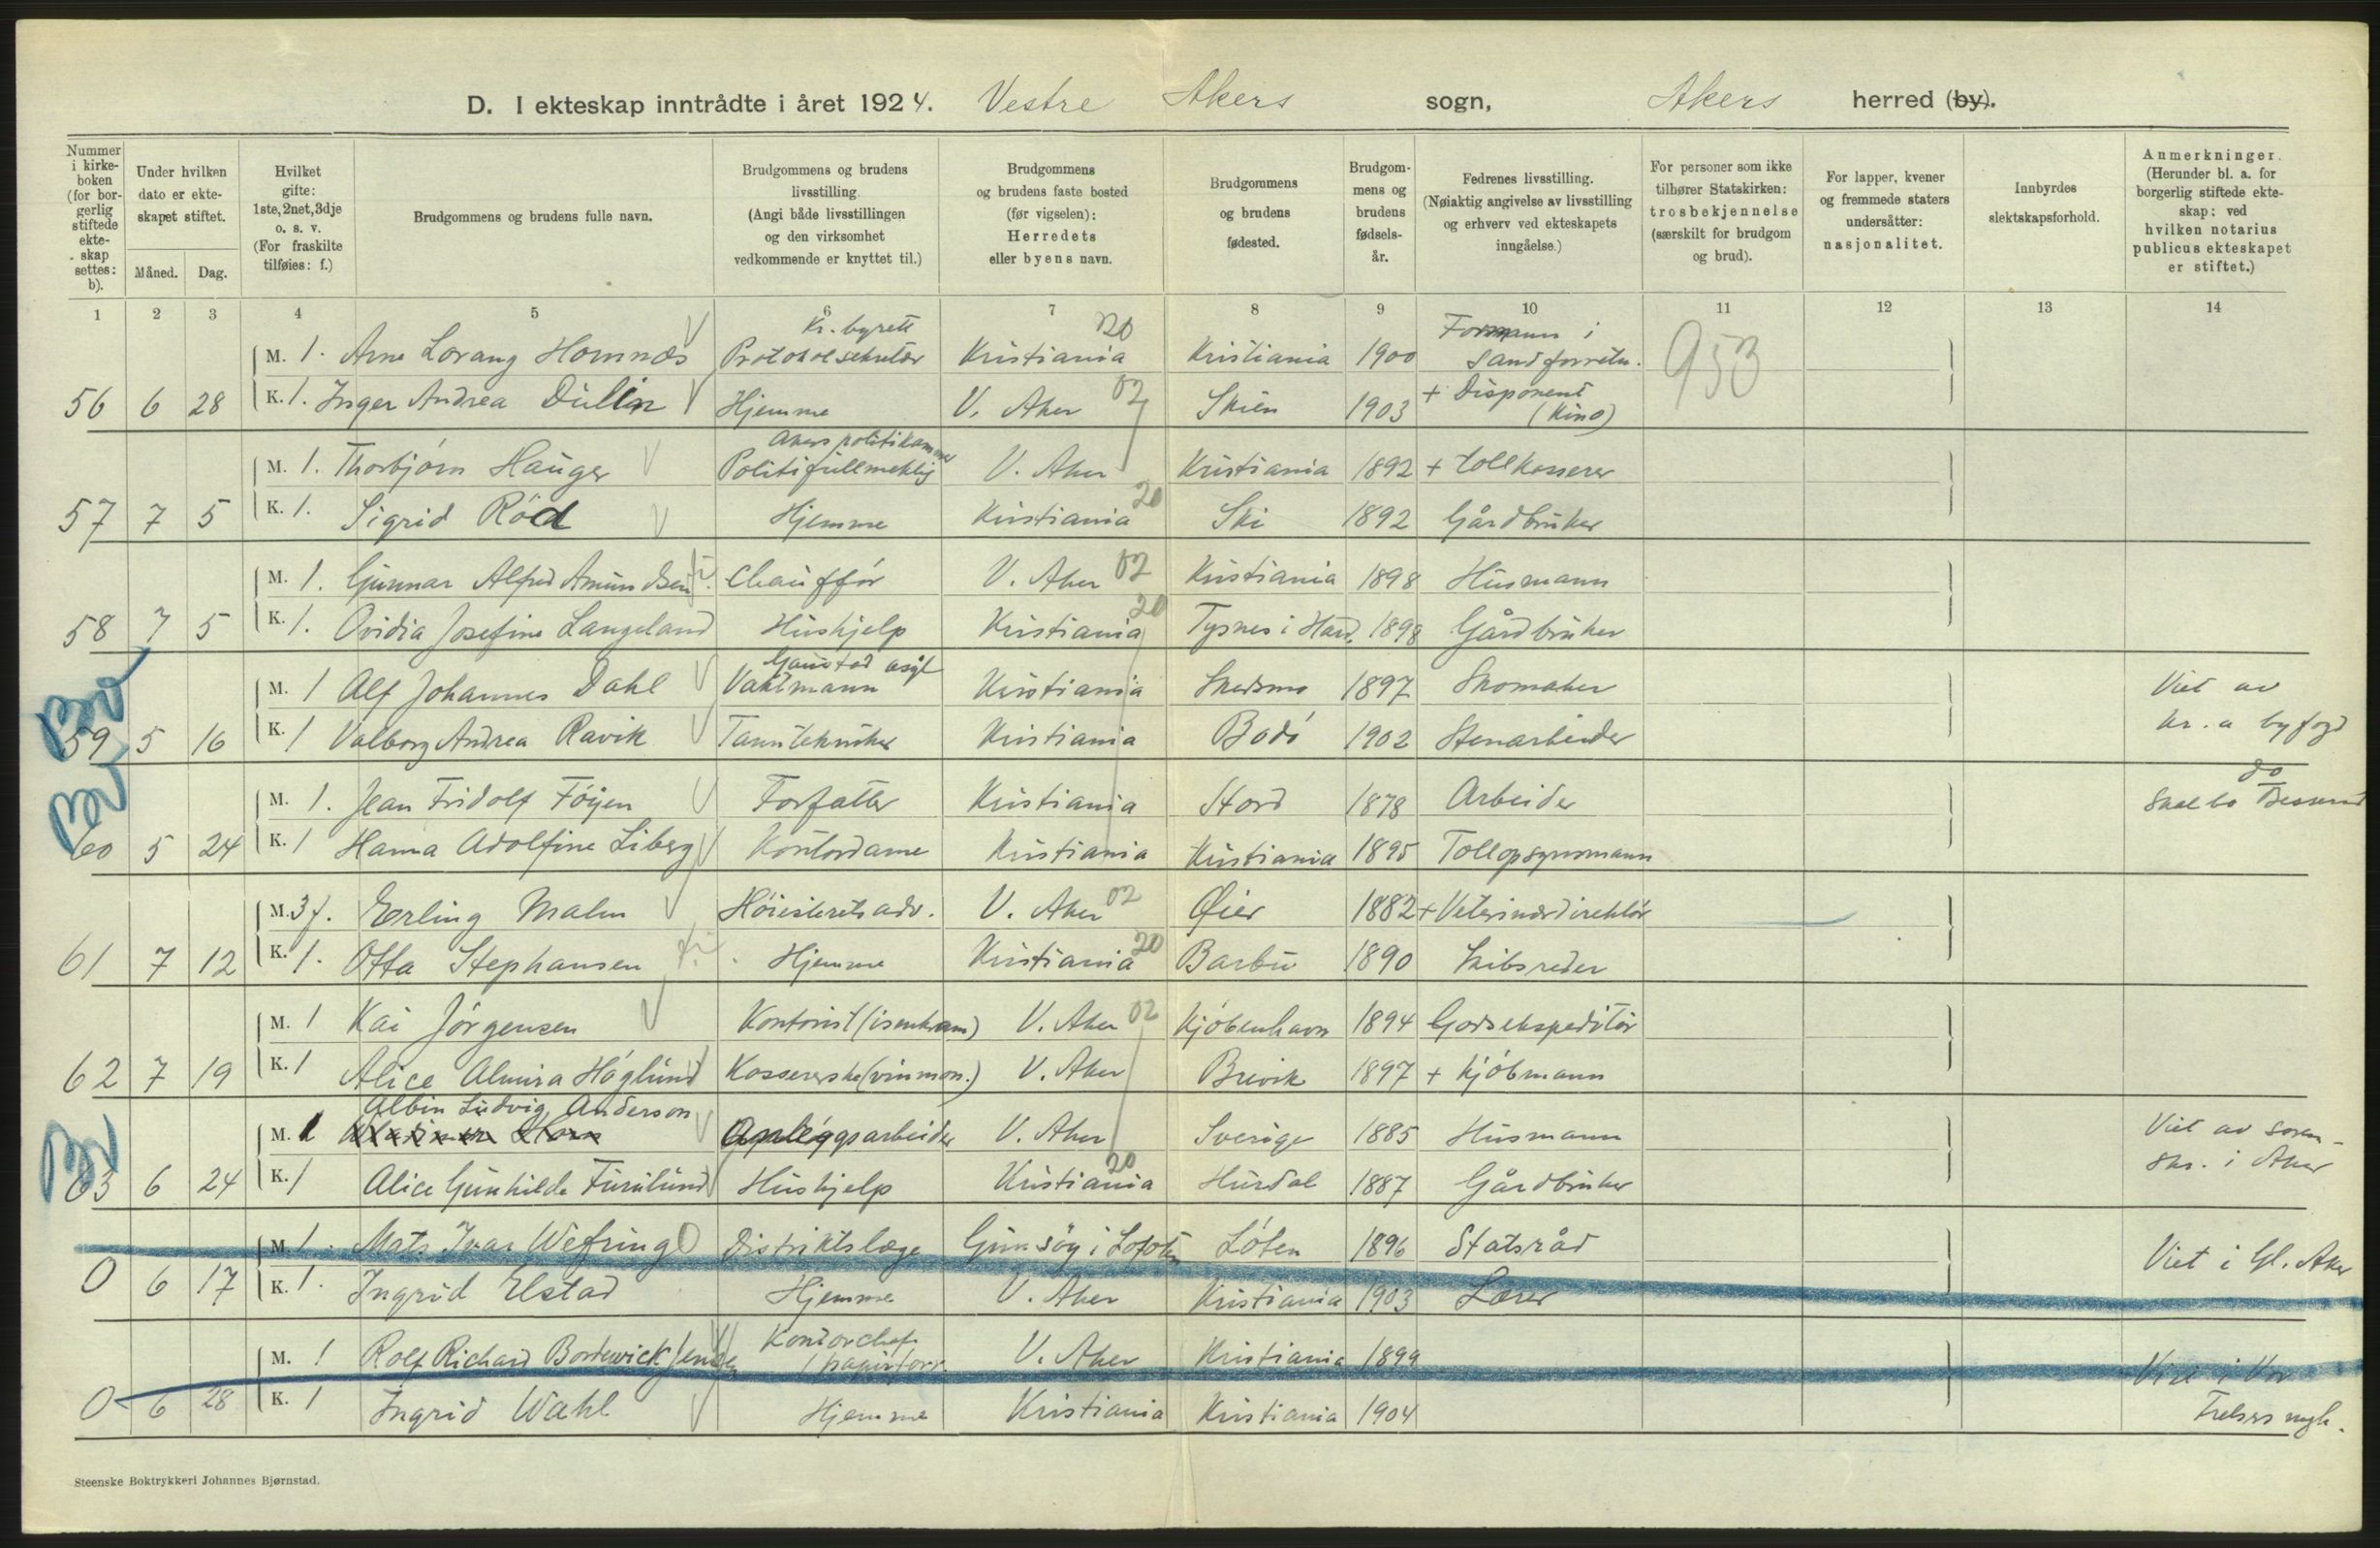 D. I ekteskap inntrådte i året 1924. Vestre Akers sogn, Akers herred (by).
Nummer i kirkeboken (for borgerlig stiftede ekteskap settes: b).
Under hvilken dato er ekteskapet stiftet.
Måned. Dag.
Hvilket gifte: 1ste, 2net, 3dje o. s. v. (For fraskilte tilføies: f.)
Brudgommens og brudens fulle navn.
Brudgommens og brudens livsstilling. (Angi både livsstillingen og den virksomhet vedkommende er knyttet til.)
Brudgommens og brudens faste bosted (før vigselen): Herredets eller byens navn.
Brudgommens og brudens fødested.
Brudgommens og brudens fødselsår.
Fedrenes livsstilling. (Nøiaktig angivelse av livsstilling og erhverv ved ekteskapets inngåelse.)
For personer som ikke tilhører Statskirken: trosbekjennelse (særskilt for brudgom og brud).
For lapper, kvener og fremmede staters undersåtter: nasjonalitet.
Innbyrdes slektskapsforhold.
Anmerkninger. (Herunder bl. a. for borgerlig stiftede ekteskap: ved hvilken notarius publicus ekteskapet er stiftet.)
1 2 3 4 5 6 7 8 9 10 11 12 13 14
Kr. byrett 20 Formann i 953
M. 1. Arne Lorang Hornnæs Protokolsekretær Kristiania Kristiania 1900 Sandforretn.
56 6 28 K. 1. Inger Andrea Dulin Hjemme V. Aker 02 Skien 1903 + Disponent (Kino)
Akers politikammer
M. 1. Thorbjørn Hauger Politifullmektig V. Aker Kristiania 1892 + Tollkasserer
57 7 5 K. 1. Sigrid Röd Hjemme Kristiania 20 Ski 1892 Gårdbruker
M. 1. Gunnar Alfred Amundsen Chauffør V. Aker 02 Kristiania 1898 Husmann
58 7 5 K. 1. Ovidia Josefine Langeland Hushjelp Kristiania 20 Tysnes i Hard. 1898 Gårdbruker
Gaustad asyl
M. 1 Alf Johannes Dahl Vaktmann Kristiania Skedsmo 1897 Skomaker Viet av
Bv 59 5 16 K. 1 Valborg Andrea Ravik Tanntekniker Kristiania Bodö 1902 Stenarbeider Kr.a byfogd
M. 1. Jean Fridolf Föyen Forfatter Kristiania Stord 1878 Arbeider do
Bv 60 5 24 K. 1 Hanna Adolfine Liberg Kontordame Kristiania Kristiania 1895 Tollopsynsmann
M. 3 f. Erling Malm Höiesteretsadv. V. Aker 02 Øier 1882 + Veterinærdirektör
61 7 12 K. 1. Otta Stephansen Hjemme Kristiania 20 Barbu 1890 Skibsreder
M. 1 Kai Jörgensen Kontorist (isenkram) V. Aker 02 Kjöbenhavn 1894 Godsekspeditör
62 7 19 K. 1 Alice Almira Höglund Kassererske (vinmon.) V. Aker Brevik 1897 + Kjöbmann
Albin Ludvig Anderson
M. 1 Anlèggsarbeider V. Aker Sverige 1885 Husmann Viet av soren-
Bv 63 6 24 K. 1 Alice Gunhilde Furulund Hushjelp Kristiania 20 Hurdal 1887 Gårdbruker skr. i Aker
M. 1. Mats Ivar Wefring Distriktslæge Gimsöy i Lofoten Löten 1896 Statsråd
0 6 17 K. 1. Ingrid Elstad Hjemme V. Aker Kristiania 1903 Lærer Viet i Gl. Aker
Kontorchef
M. 1 Rolf Richard Bordewick Jensen (papirforr. V. Aker Kristiania 1899 Viet i Vor
0 6 28 K. 1 Ingrid Wahl Hjemme Kristiania Kristiania 1904 Frelsers mgh.
Steenske Boktrykkeri Johannes Bjørnstad.